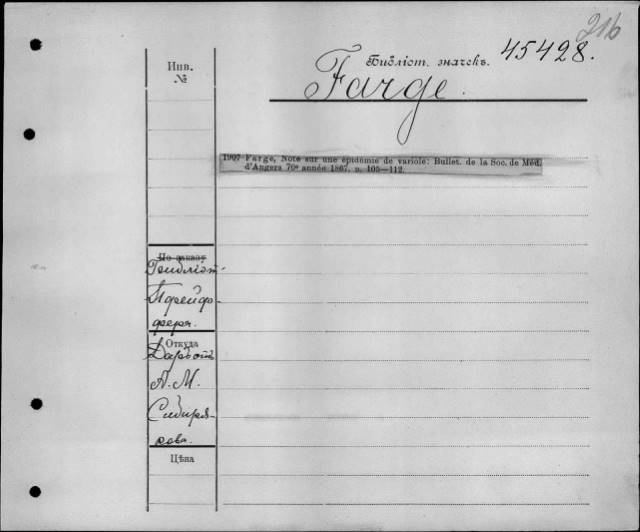 216
Библіот. значекъ. 45428.
Farge.
Инв.
№
1907 Farge, Note sur une épidémie de variole: Bullet. de la Soc. de Méd.
d'Angers 70e année 1867. p. 105—112.
По заказу
Библіот.
Пфейф-
фера.
Откуда
Даръ отъ
А. М.
Сибиря-
кова.
Цѣна